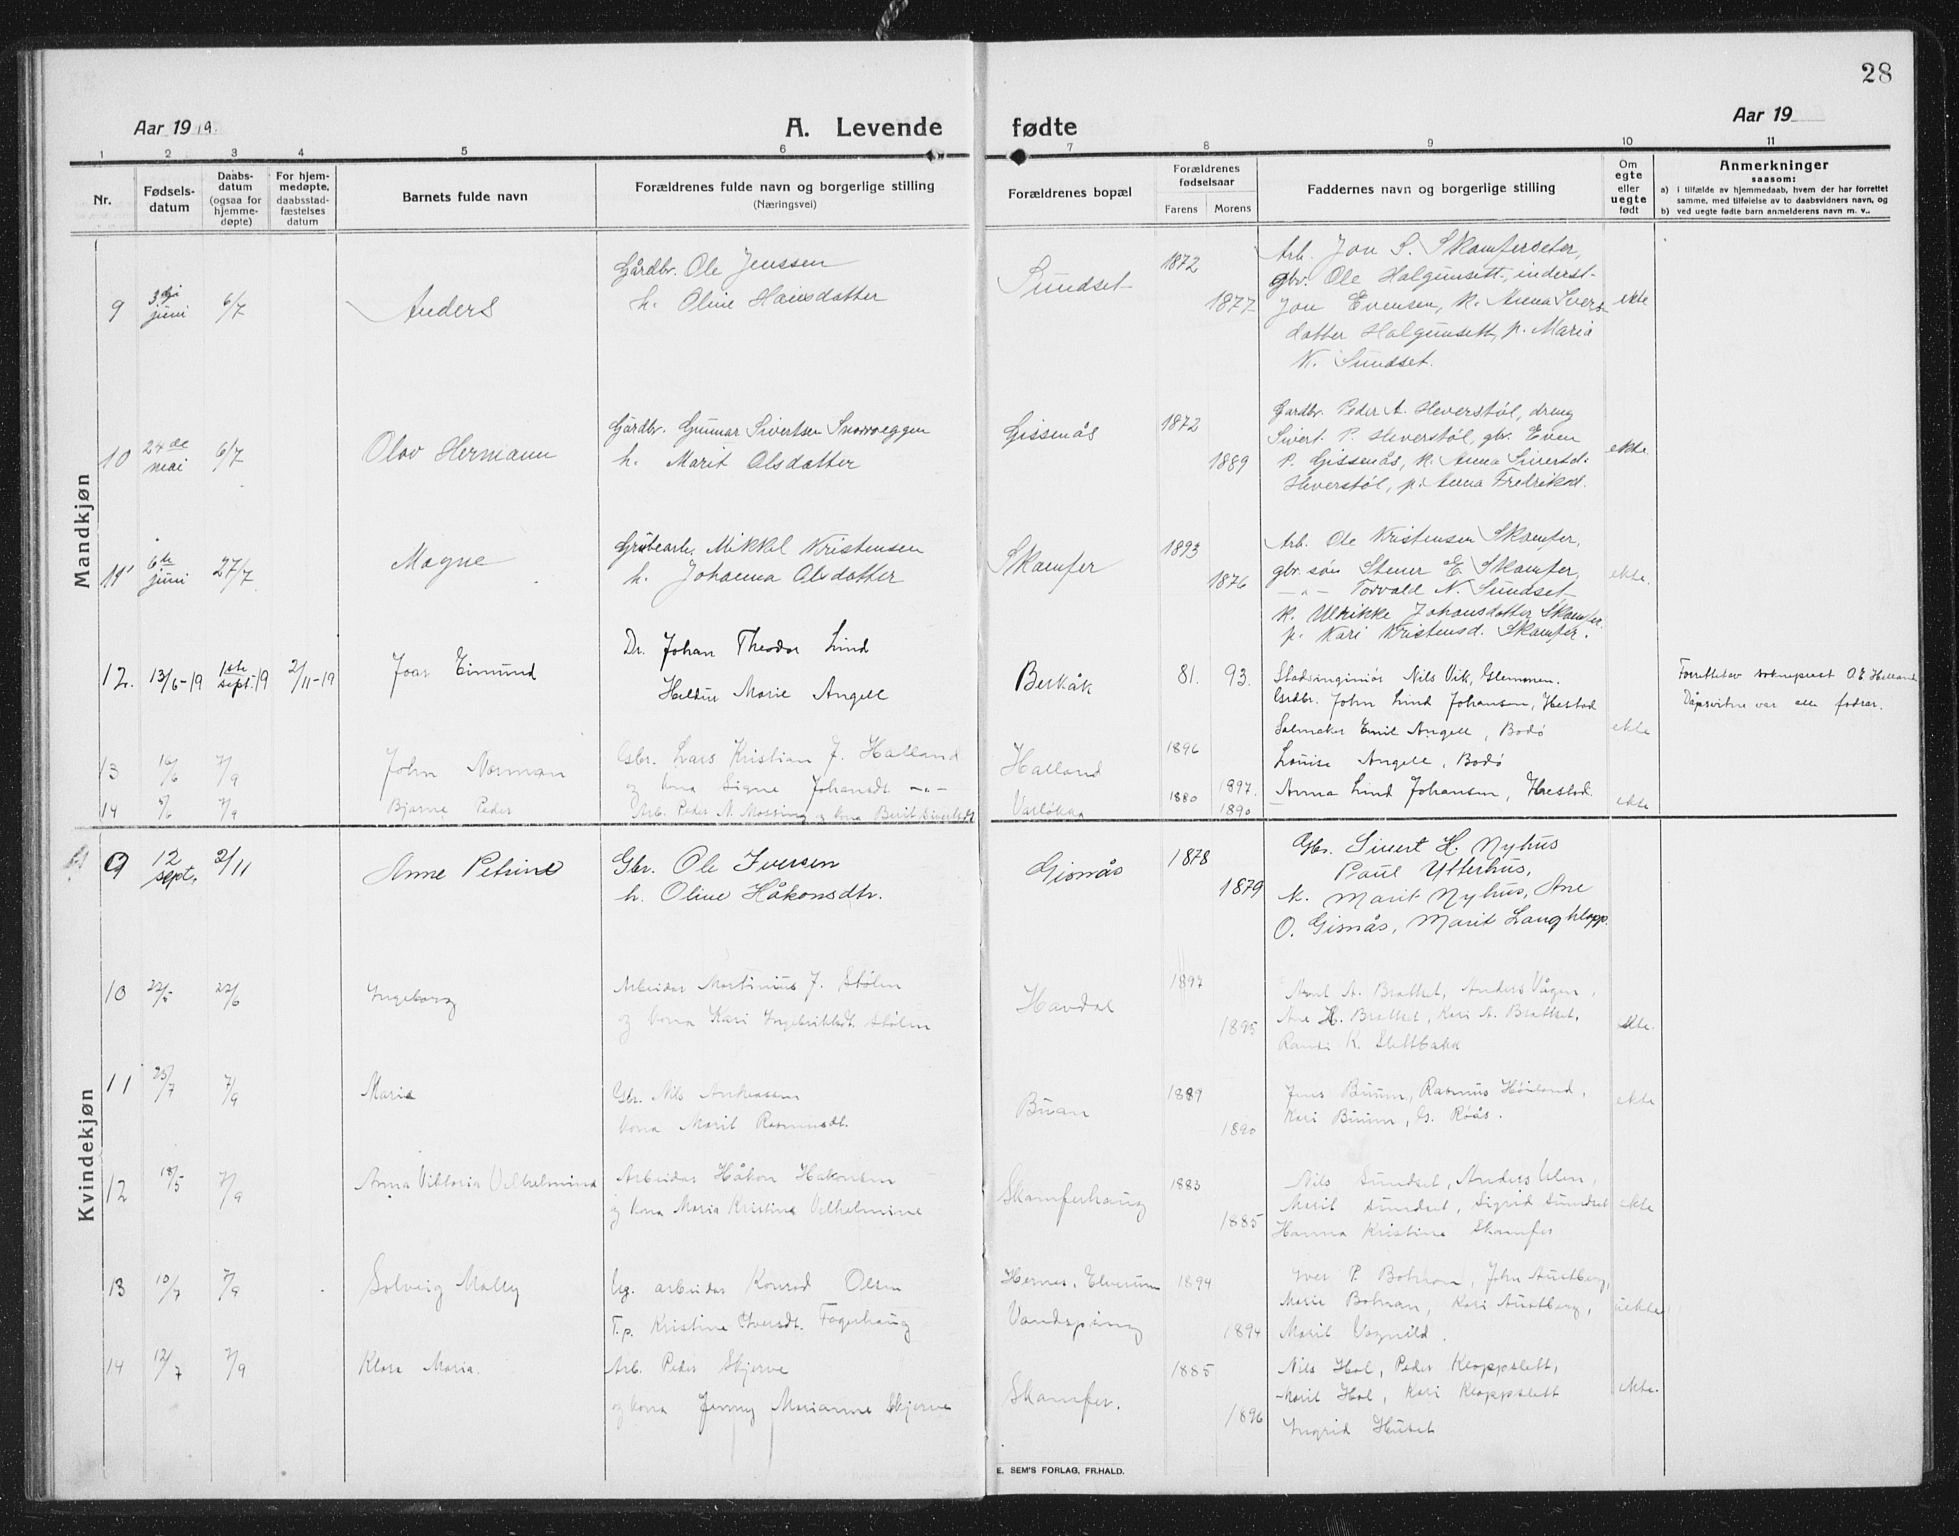 28
Aar 1919.
A. Levende fødte
Aar 19
1 2 3 4 5 6 7 8 9 10 11
Nr.
Fødsels-
datum
Daabs-
datum
(ogsaa for
hjemme-
døpte)
For hjem-
medøpte,
daabsstad-
fæstelses
datum
Barnets fulde navn
Forældrenes fulde navn og borgerlige stilling
(Næringsvei)
Forældrenes bopæl
Forældrenes
fødselsaar
Farens Morens
Faddernes navn og borgerlige stilling
Om
egte
eller
uegte
født
Anmerkninger
saasom:
a) i tilfælde av hjemmedaab, hvem der har forrettet
samme, med tilføielse av to daabsvidners navn, og
b) ved uegte fødte barn anmelderens navn m. v..
Mandkjøn
9 juni 6/7 Anders
Gårdbr. Ole Jenssen
h. Oline Hansdatter
Sundset 1872 1877
Arb. Jon S. Skamferseter,
gbr. Ole Halgunsett, inderst
Jon Evensen, k. Anna Ivers-
datter Halgunsett, p. Maria
N. Sundset.
ekte
10 24de mai 6/7 Olov Hermann
Gårdbr. Gunnar Sivertsen
h. Marit Olsdatter
Gissenås 1872 1889
Gardbr. Peder A. Heverstøl, dreng
Sivert P. Heverstøl, gbr. Even
P. Gissenås, k. Anna Sivertsd.
Heverstøl, p. Anna Fredriksd.
ekte
11 6te juni 27/7 Magne
Grubearb. Mikkel Kristensen
h. Johanna Olsdatter
Skamfer 1893 1876
Arb. Ole Kristensen Skamfer,
gbr. søn Stener E. Skamfer,
— " — Torvald N. Sundset
k. Ulrikke Johansdatter Skamfer.
p. Kari Kristensd. Skamfer.
ekte.
12. 13/6-19 1ste sept. 19 2/11-19 Joar Eimund
Dr. Johan Theodor Lind
Heldur Marie Angell
Berkåk 81. 93.
Stadsingeniør Nils Vik, Glemmen.
Grdbr. John Lind Johansen, Hestad
Salmaker Emil Angell, Bodø
Louise Angell, Bodø
Anna Lind Johansen, Hestad.
ekte
Forrettet av sokneprest O. E. Helland
Dåpsvitne var alle fadrar.
13 16/6 7/9 John Norman
Gbr. Lars Kristian J. Halland
og kona Signe Johansdt. — " —
Halland 1896 1897.
14 7/9 Bjarne Peder
Arb. Peder N. Mossing og kona Berit Sivertsdt
Varløkka 1880 1890
ekte
Kvindekjøn
9 12 sept. 2/11 Anne Petrine
Gbr. Ole Iversen
h. Oline Håkonsdtr.
Gisnås 1878 1879
Gbr. Sivert H. Nyhus
Paul Ytterhus,
k. Marit Nyhus, Ane
O. Gisnås, Marit Langklopp.
10 22/5 22/6 Ingeborg
Arbeidar Martinius J. Stølen
og kona Kari Ingebriktsdt. Stølen
Havdal 1897 1895
Arnt A. Brattset, Anders Vågen,
Ane H. Brattset, Kari A. Brattset,
Randi K. Slettbakk
ekte.
11 25/7 7/9 Maria
Gbr. Nils Andreassen
kona Marit Rasmusdt.
Buan 1889 1890
Jens Buum, Rasmus Höiland,
Kari Buum, G. Røås.
ekte
12 18/5 7/9 Anna Viktoria Vilhelmine
Arbeidar Håkon Hakonsen
og kona Maria Kristine Vilhelmine
Skamferhaug 1883 1885
Nils Sundset, Anders Uen,
Marit Sundset, Sigrid Sundset
Hanna Kristine Skamfer
ekte
13 10/7 7/9 Solveig Molly
Ug. arbeidar Konrad Olsen
T.p. Kristine Iversdt. Fagerhaug
Hernes, Elverum
Vandspring 1894 1894
Iver P. Bohran, John Austberg,
Marie Bohran, Kari Austberg,
Marit Vognild.
uekte
14 12/7 7/9 Klara Maria.
Arb. Peder Skjerve
og kona Jenny Marianne Skjerve
Skamfer. 1885 1896
Nils Hol, Peder Kloppslett,
Marit Hol, Kari Kloppslett
Ingrid Huset
ekte.
E. SEM'S FORLAG, FR.HALD.